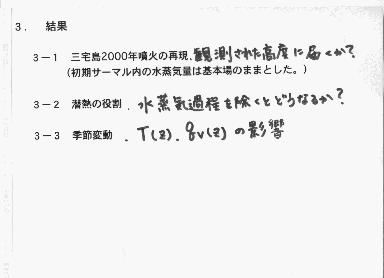 3. 結果
3-1 三宅島2000年噴火の再現、観測された高度に届くか?
(初期サーマル内の水蒸気量は基本場のままとした。)
3-2 潜熱の役割 . 水蒸気過程を除くとどうなるか?
3-3 季節変動 . T(z)、qv(z) の影響